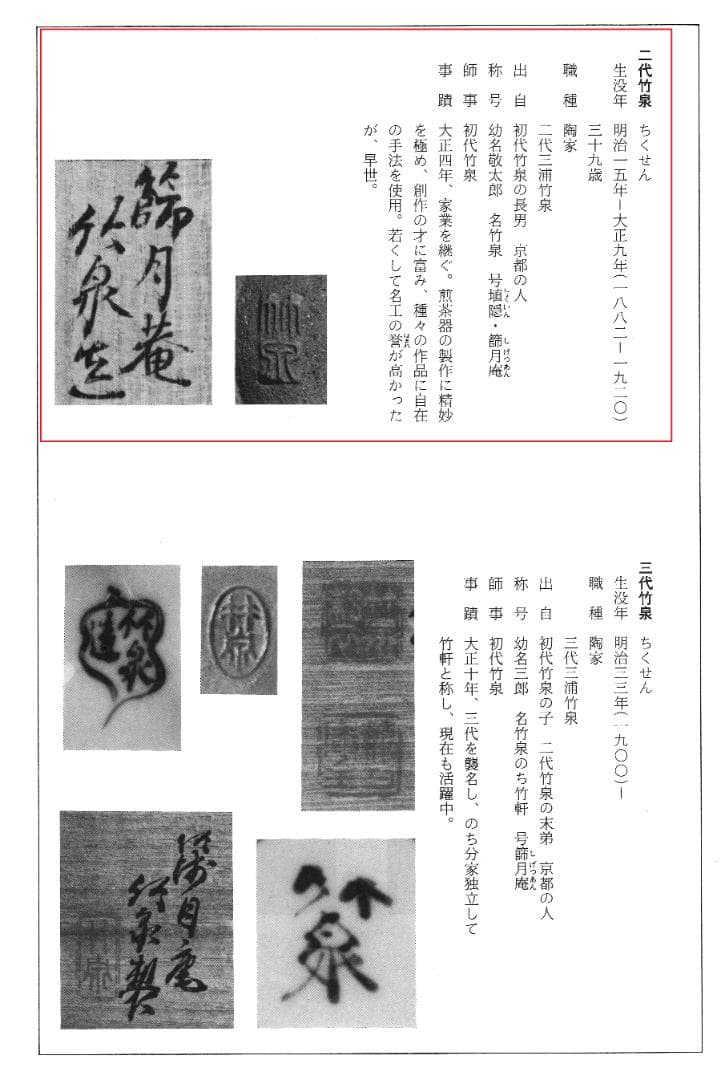 二代竹泉 ちくせん
生没年 明治一五年ー大正九年(一八八二ー一九二〇)
三十九歳
職種 陶家
二代三浦竹泉
出自 初代竹泉の長男 京都の人
称号 幼名敬太郎 名竹泉 号埴隠・篩月庵
しょくいん しげつあん
師事 初代竹泉
事蹟 大正四年、家業を継ぐ。煎茶器の製作に精妙
を極め、創作の才に富み、種々の作品に自在
の手法を使用。若くして名工の誉が高かった
ほまれ
が、早世。
竹泉
篩月庵
竹泉造
三代竹泉 ちくせん
生没年 明治三三年(一九〇〇)ー
職種 陶家
三代三浦竹泉
出自 初代竹泉の子 二代竹泉の末弟 京都の人
称号 幼名三郎 名竹泉のち竹軒 号篩月庵
しげつあん
師事 初代竹泉
事蹟 大正十年、三代を襲名し、のち分家独立して
竹軒と称し、現在も活躍中。
竹泉
竹泉
竹泉
篩月庵
竹泉製